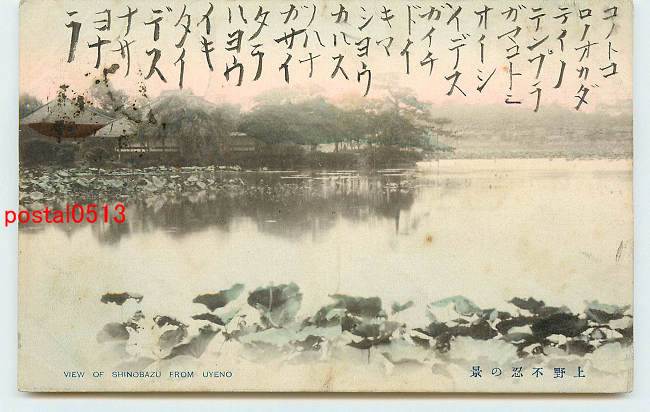 コノトコ
ロノオカダ
テイノ
テンプラ
ガマコトニ
オイシ
イデス
ガイチ
ドイ
キマ
シヨウ
カハス
ノハナ
ガサイ
タラ
ハヨウ
イキ
タイ
デス
ナサ
ヨナ
ラ
postal0513
VIEW OF SHINOBAZU FROM UYENO
上野不忍の景